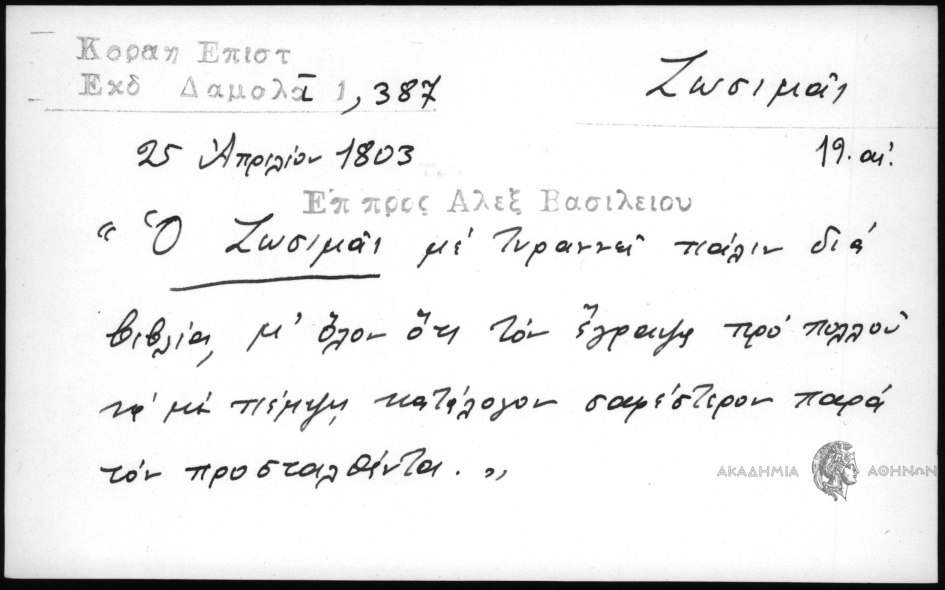 Κοραη Επιστ
Εκδ Δαμολᾶ 1, 387
Ζωσιμᾶς
25 Ἀπριλίου 1803
19. αἰ.
Επ προς Αλεξ Βασιλειου
"Ὁ Ζωσιμᾶς μέ τυραννεῖ πάλιν διά
βιβλία, μ' ὅλον ὅτι τόν ἔγραψα πρό πολλοῦ
νά μέ πέμψῃ κατάλογον σαφέστερον παρά
τόν προσταλθέντα."
ΑΚΑΔΗΜΙΑ ΑΘΗΝΩΝ